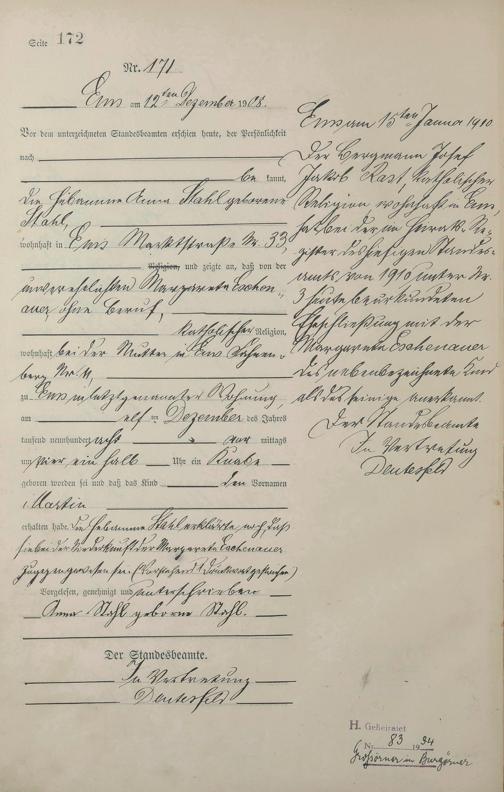 Seite 172
Nr. 171
Ems am 12ten Dezember 1908.
Vor dem unterzeichneten Standesbeamten erschien heute, der Persönlichkeit
nach
be kannt,
die Hebamme Anna Stahl geborene
Stahl,
wohnhaft in Ems Marktstraße Nr. 33,
Religion, und zeigte an, daß von der
unverehelichten Margarete Eschen-
auer, ohne Beruf,
katholischer Religion,
wohnhaft bei der Mutter in Ems
berg Nr. 11,
zu Ems in letztgenannter Wohnung,
am elf ten Dezember des Jahres
tausend neunhundert acht vor mittags
um vier ein halb Uhr ein Knabe
geboren worden sei und daß das Kind den Vornamen
Martin
erhalten habe. Die Hebamme Stahl erklärte noch, daß
sie bei der Niederkunft der Margarete Eschenauer
zugegen gewesen sei. (Vorstehend 1 Druckwort gestrichen)
Vorgelesen, genehmigt und unterschrieben
Anna Stahl geborne Stahl.
Der Standesbeamte.
In Vertretung
Ems am 15ten Januar 1910
Der Bergmann Josef
Jakob Kast, katholischer
Religion, wohnhaft in Ems,
hat bei der im Heirats-Re-
gister des hiesigen Standes-
amts von 1910 unter Nr.
3 heute beurkundeten
Eheschließung mit der
Margarete Eschenauer
das nebenbezeichnete Kind
als das seinige anerkannt.
Der Standesbeamte
In Vertretung
H. Geheiratet
Nr. 83 1934
Großörner in Burgörner